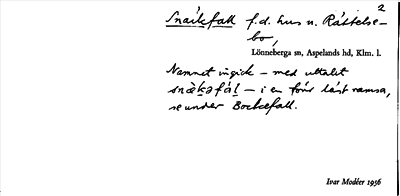 2
Snäckefall f.d. hus u. Råttelse-
bo,
Lönneberga sn, Aspelands hd, Klm. l.
Namnet ingick – med uttalet
– i en förr läst ramsa,
se under Bockefall.
Ivar Modéer 1956